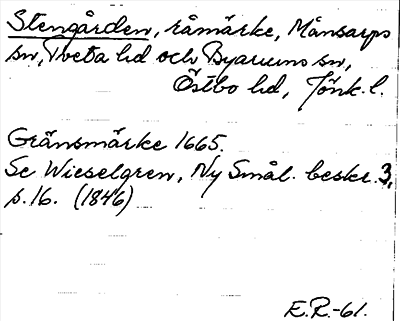 Stengården, råmärke, Månsarps
sn, Tveta hd och Byarums sn,
Östbo hd, Jönk. l.
Gränsmärke 1665.
Se Wieselgren, Ny Smål. beskr. 3,
s. 16. (1846)
E.R.-61.